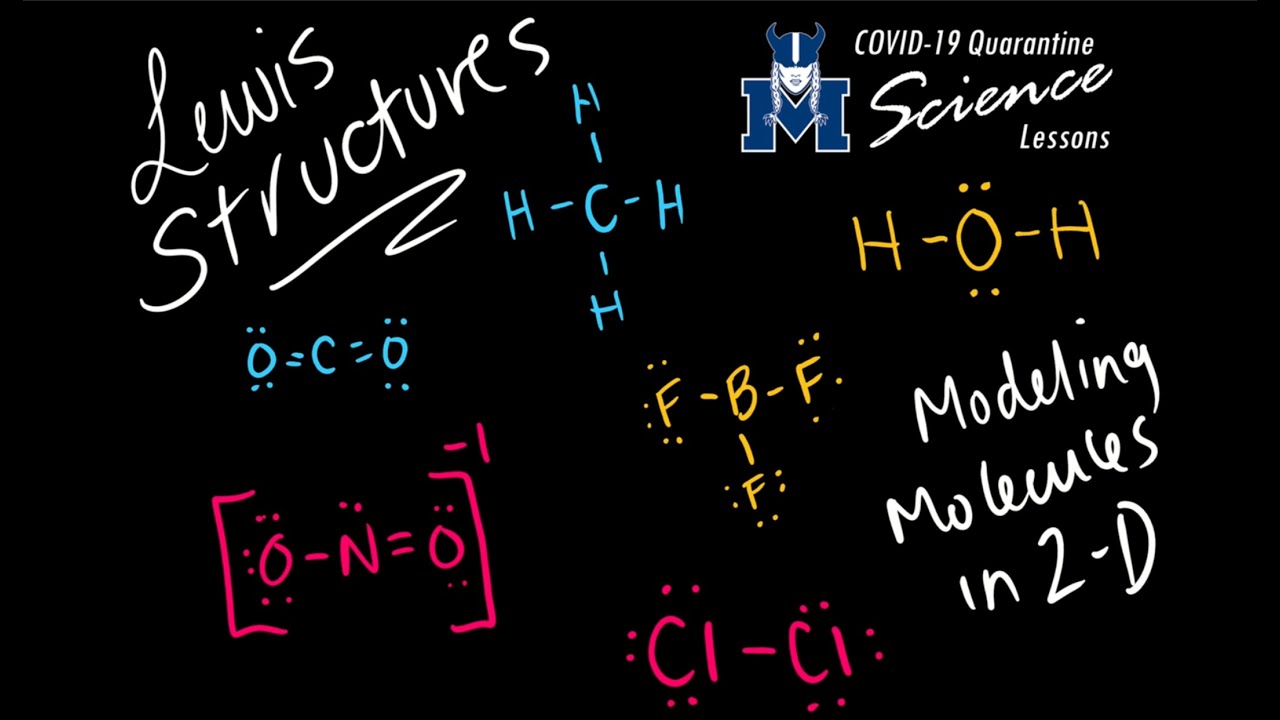 Lewis
Structures
M
COVID-19 Quarantine
Science
Lessons
H
H-C-H
H
H-O-H
O=C=O
F-B-F
F
Modeling
Molecules
in 2-D
[O-N=O]-1
Cl-Cl